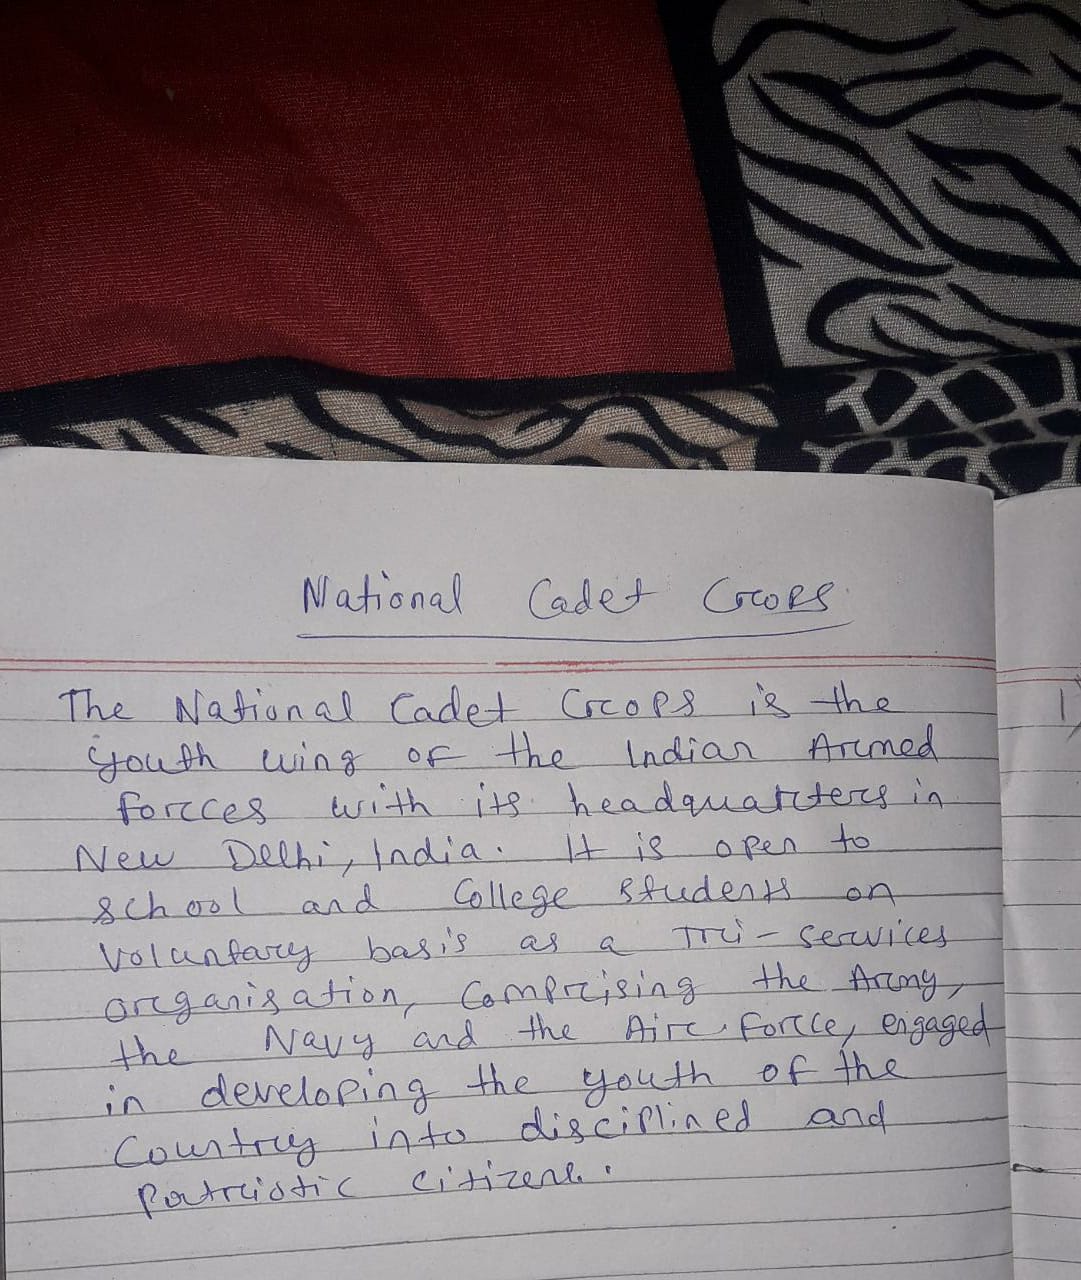 National Cadet Crops
The National Cadet Crops is the
youth wing of the Indian Armed
forces with its headquarters in
New Delhi, India. It is open to
school and College students on
Voluntary basis as a Tri-services
organisation, Comprising the Army,
the Navy and the Air Force, engaged
in developing the youth of the
Country into disciplined and
Patriotic citizens.
1)